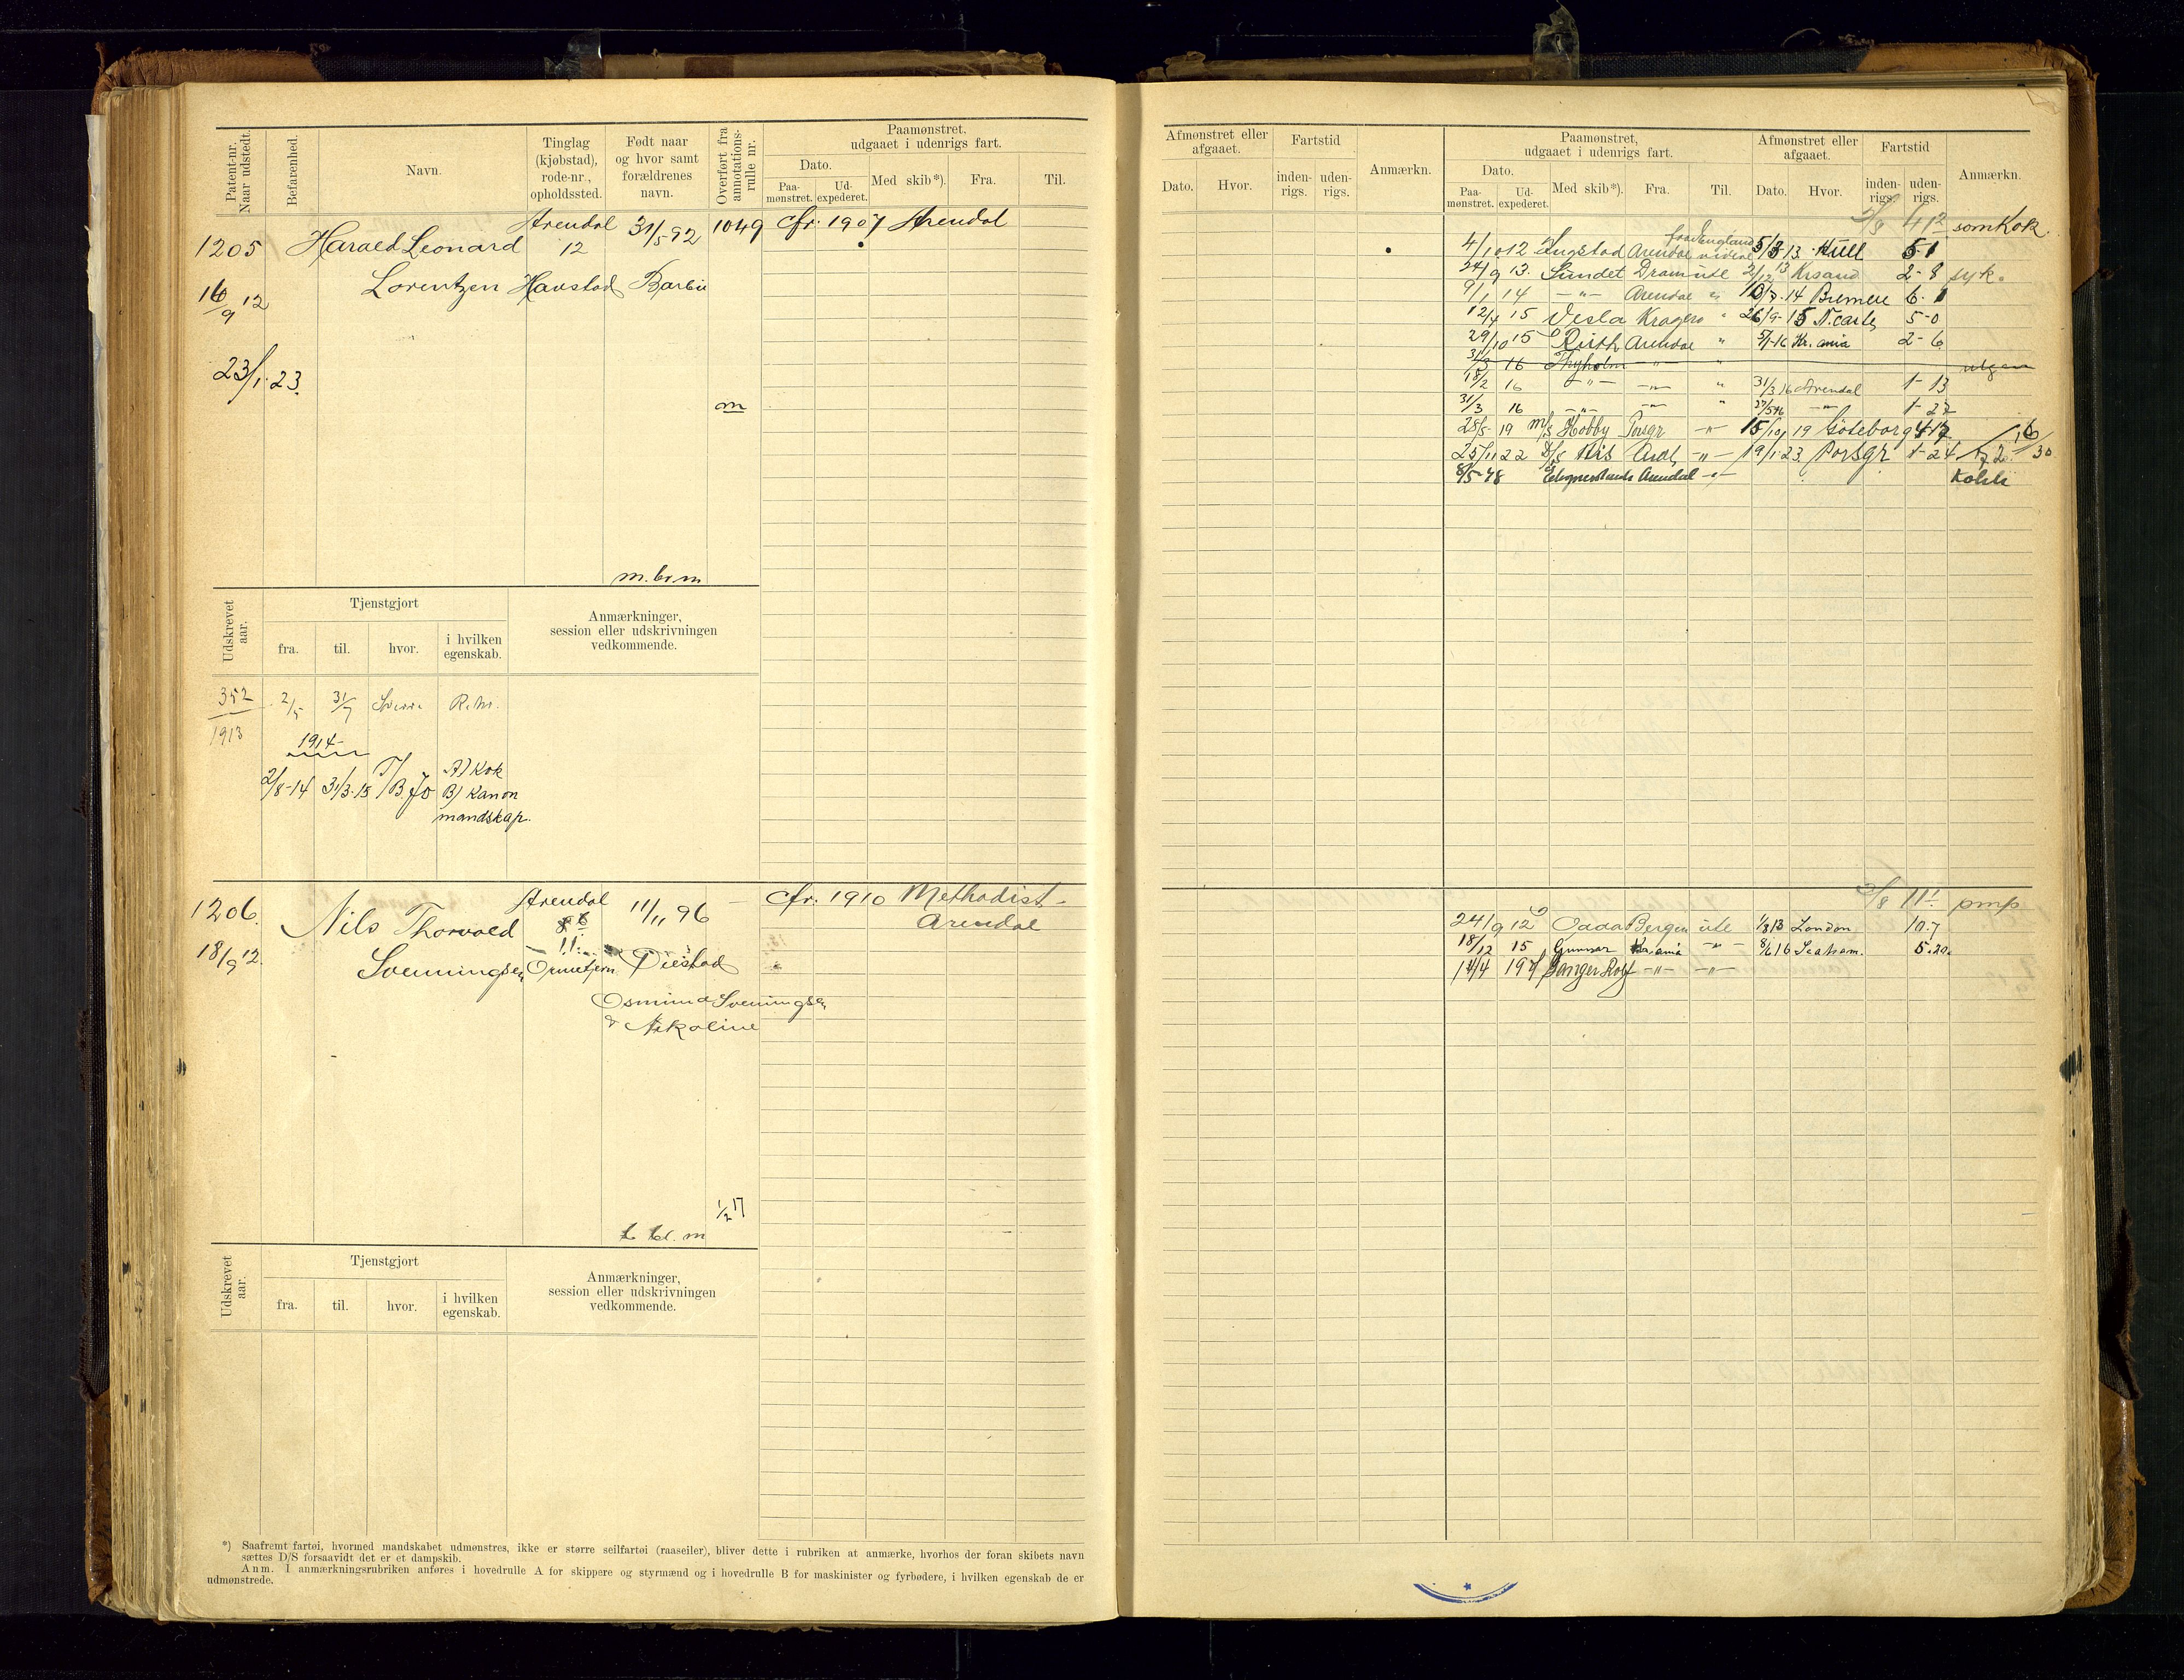 Patent-nr. Naar udstedt.
Befarenhed.
Navn.
Tinglag (kjøbstad), rode-nr., opholdssted.
Født naar og hvor samt forældrenes navn.
Overført fra annotations-rulle nr.
Paamønstret, udgaaet i udenrigs fart.
Dato.
Paa-mønstret.
Ud-expederet.
Med skib*).
Fra.
Til.
1205
16/9 12
23/1 23.
Harald Leonard
Lorentzen
Arendal
12
Havstad
31/5 92
Barbu
1049
cfr. 1907 Arendal
m
m.br.m
Udskrevet aar.
Tjenstgjort
fra.
til.
hvor.
i hvilken egenskab.
Anmærkninger, session eller udskrivningen vedkommende.
352
1913
2/5
31/7
1914
2/8-14 31/3-15
A) Kok
B) Kanon
mandskap.
1206.
18/9 12.
Nils Thorvald
Svenningsen
Arendal
11/11 96
cfr. 1910 Methodist-
Arendal
Osmund Svenningsen
& Nikoline
1/2 17
Udskrevet aar.
Tjenstgjort
fra.
til.
hvor.
i hvilken egenskab.
Anmærkninger, session eller udskrivningen vedkommende.
*) Saafremt fartøi, hvormed mandskabet udmønstres, ikke er større seilfartøi (raaseiler), bliver dette i rubriken at anmærke, hvorhos der foran skibets navn
sættes D/S forsaavidt det er et dampskib.
Anm. I anmærkningsrubriken anføres i hovedrulle A for skippere og styrmænd og i hovedrulle B for maskinister og fyrbødere, i hvilken egenskab de er
udmønstrede.
Afmønstret eller afgaaet.
Dato.
Hvor.
Fartstid
inden-rigs.
uden-rigs.
Anmærkn.
Paamønstret, udgaaet i udenrigs fart.
Dato.
Paa-mønstret.
Ud-expederet.
Med skib*).
Fra.
Til.
Afmønstret eller afgaaet.
Dato.
Hvor.
Fartstid
inden-rigs.
uden-rigs.
Anmærkn.
som Kok.
4/10 12 Lugstad Arendal 5/3-13 Hull 5 1
24/9 13. Sundet Dram ute 2/12 13 Krsand 2-8 syk.
9/1 14 -"- Arendal " 10/7-14 Bremen 6.1
12/4 15 Vesla Kragerø " 26/9-15 N.castle 5-0
29/10 15 Ruth Arendal " 5/1-16 Kr.ania 2-6
31/3 16 Thyholm -"- " utgaar
18/2 16 -"- -"- " 31/3 16 Arendal 1-13
31/3 16 -"- -"- " 27/5 16 -"- 1-27
28/5-19 M/S Hobby Porsgr -"- 15/10 19 Göteborg 4-17
25/11 22 D/S His Ardl -"- 19/1-23. Porsgr 1-24
8/5-48 Arendal -"-
11 1 pmp
24/9 12 Oddø Bergen ute 1/8 13 London 10.7
18/12 15 Gunnar Kr.ania -"- 8/6 16 Seaham. 5.20.
14/4 197 Ganger Rolf -"- -"-